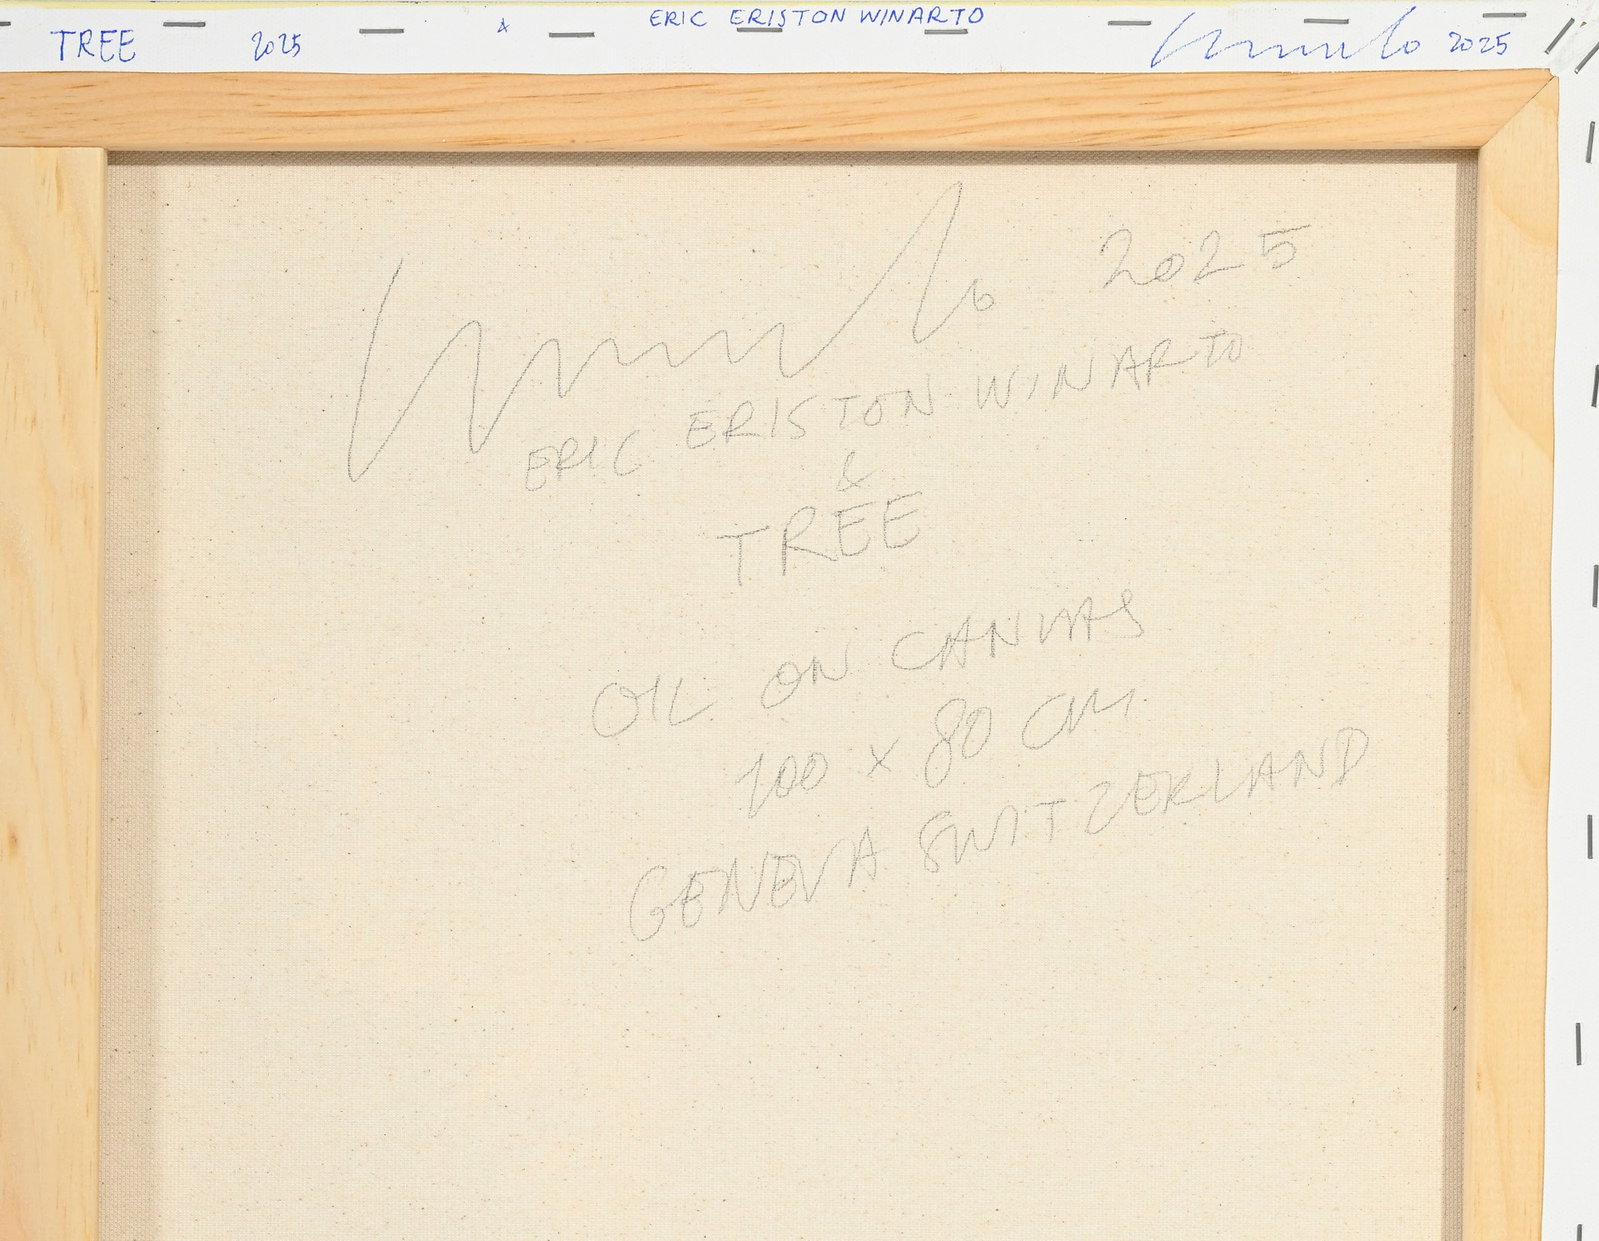 ERIC ERISTON WINARTO
TREE 2025 2025
2025
ERIC ERISTON WINARTO
&
TREE
OIL ON CANVAS
100 x 80 CM.
GENEVA SWITZERLAND